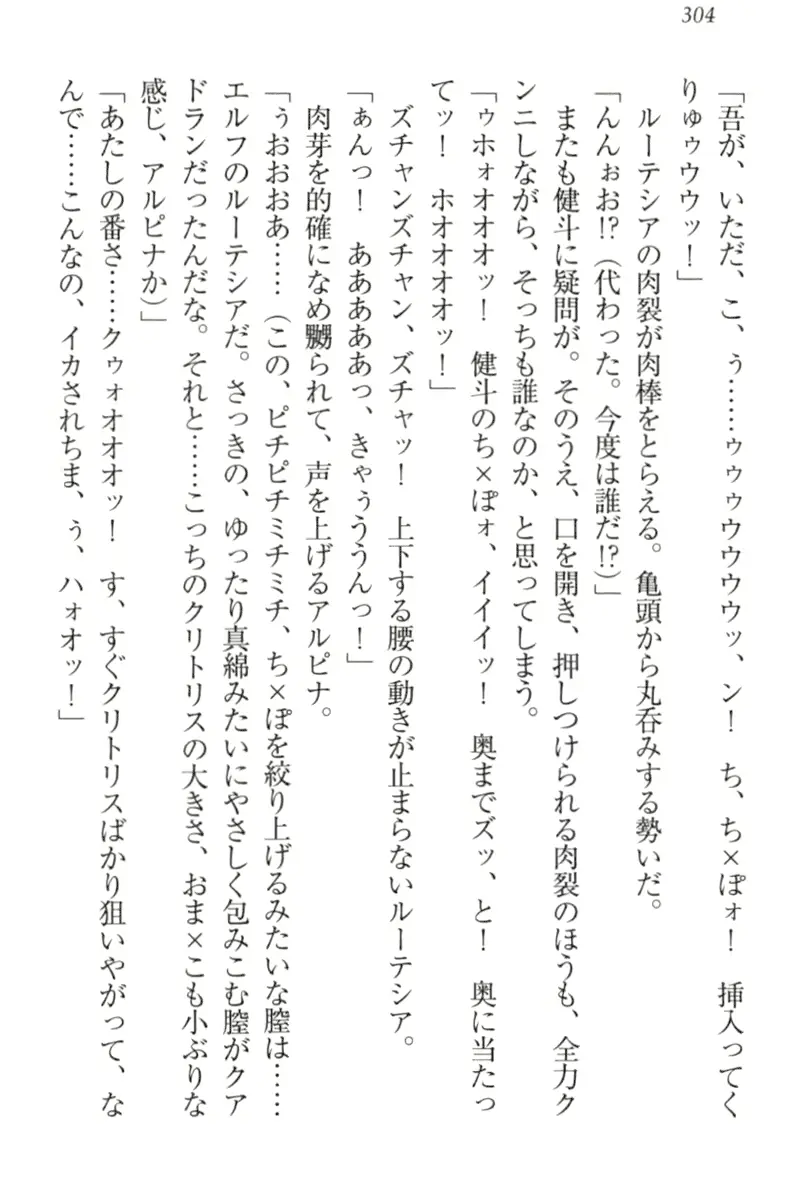 304
「吾が、いただ、こ、ぅ……ゥゥゥウウウウッ、ン！　ち、ち×ぽォ！　挿入ってく
りゅゥウウッ！」
　ルーテシアの肉裂が肉棒をとらえる。亀頭から丸呑みする勢いだ。
「んんぉお!?（代わった。今度は誰だ!?）」
　またも健斗に疑問が。そのうえ、口を開き、押しつけられる肉裂のほうも、全力ク
ンニしながら、そっちも誰なのか、と思ってしまう。
「ゥホォオオオッ！　健斗のち×ぽォ、イイイッ！　奥までズッ、と！　奥に当たっ
てッ！　ホオオオオッ！」
　ズチャンズチャン、ズチャッ！　上下する腰の動きが止まらないルーテシア。
「ぁんっ！　あああああっ、きゃぅううんっ！」
　肉芽を的確になめ嬲られて、声を上げるアルピナ。
「ぅおおおあ……（この、ピチピチミチミチ、ち×ぽを絞り上げるみたいな膣は……
エルフのルーテシアだ。さっきの、ゆったり真綿みたいにやさしく包みこむ膣がクア
ドランだったんだな。それと……こっちのクリトリスの大きさ、おま×こも小ぶりな
感じ、アルピナか）」
「あたしの番さ……クゥォオオオッ！　す、すぐクリトリスばかり狙いやがって、な
んで……こんなの、イカされちま、ぅ、ハォオッ！」